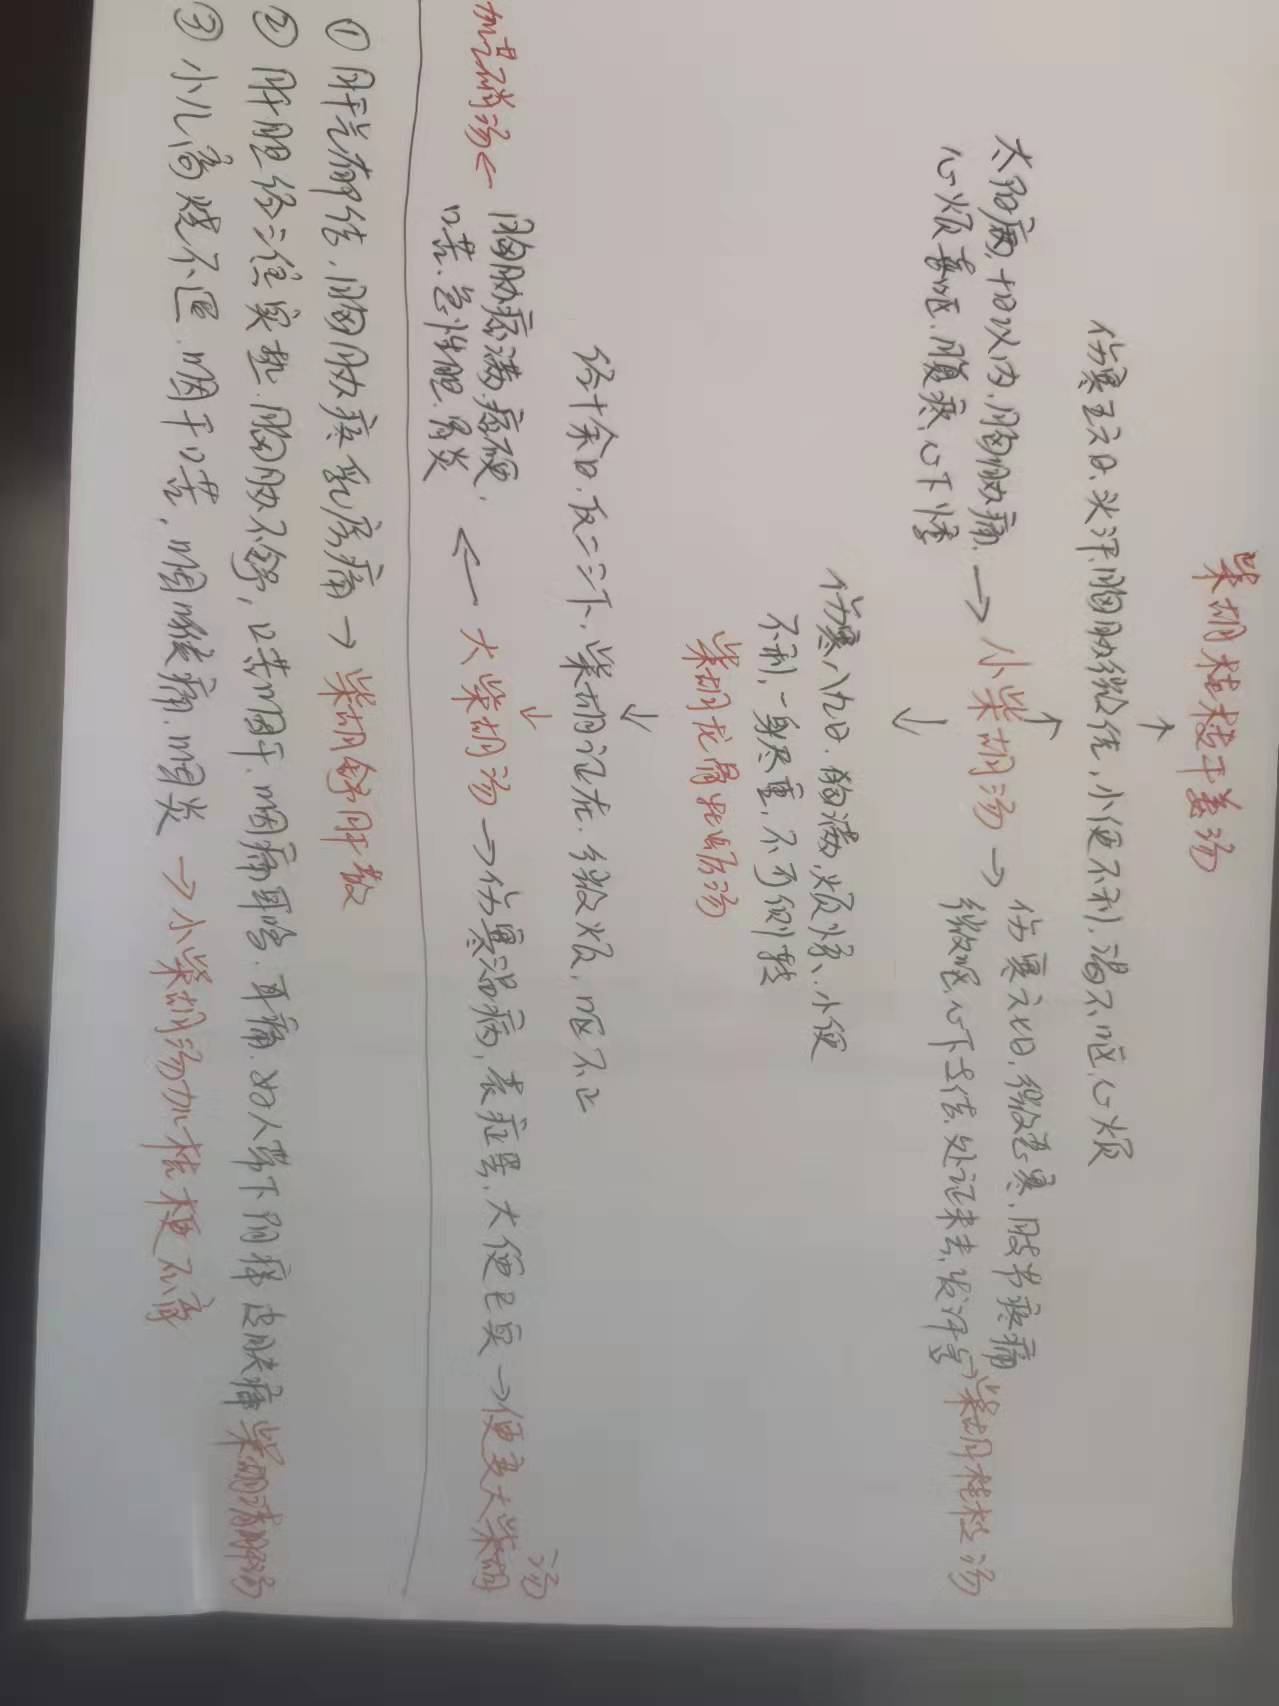 柴胡桂枝干姜汤
↑
伤寒五六日.米汗.胸胁微结,小便不利,渴不呕,心烦
↑
太阳病,十日以内,胸胁痛. → 小柴胡汤 → 伤寒六七日,微恶寒,肢节疼痛
心烦喜呕.腹疼.心下悸
微呕,心下支结.处证未去,发汗多→柴胡桂枝汤
↓
伤寒八九日.胸满,烦惊、小便
不利,一身尽重,不可侧转
柴胡龙骨牡蛎汤
↓
经十余日.反二三下.柴胡证在.微烦,呕不止
↓
加芒硝汤← 胸胁痞满.痞硬. ← 大柴胡汤 →伤寒温病,表症罢,大便已实→便更大柴胡汤
口苦.急性胆.胃炎
① 肝气郁结.胸胁疼 乳房痛→柴胡舒肝散
② 肝胆经三焦实热.胸胁不舒,口苦咽干.咽痛耳鸣.耳痛.妇人带下阴痒 皮肤痒 柴胡清肝汤
③ 小儿高烧不退.咽干口苦,咽喉痛.咽炎 →小柴胡汤加桔梗石膏